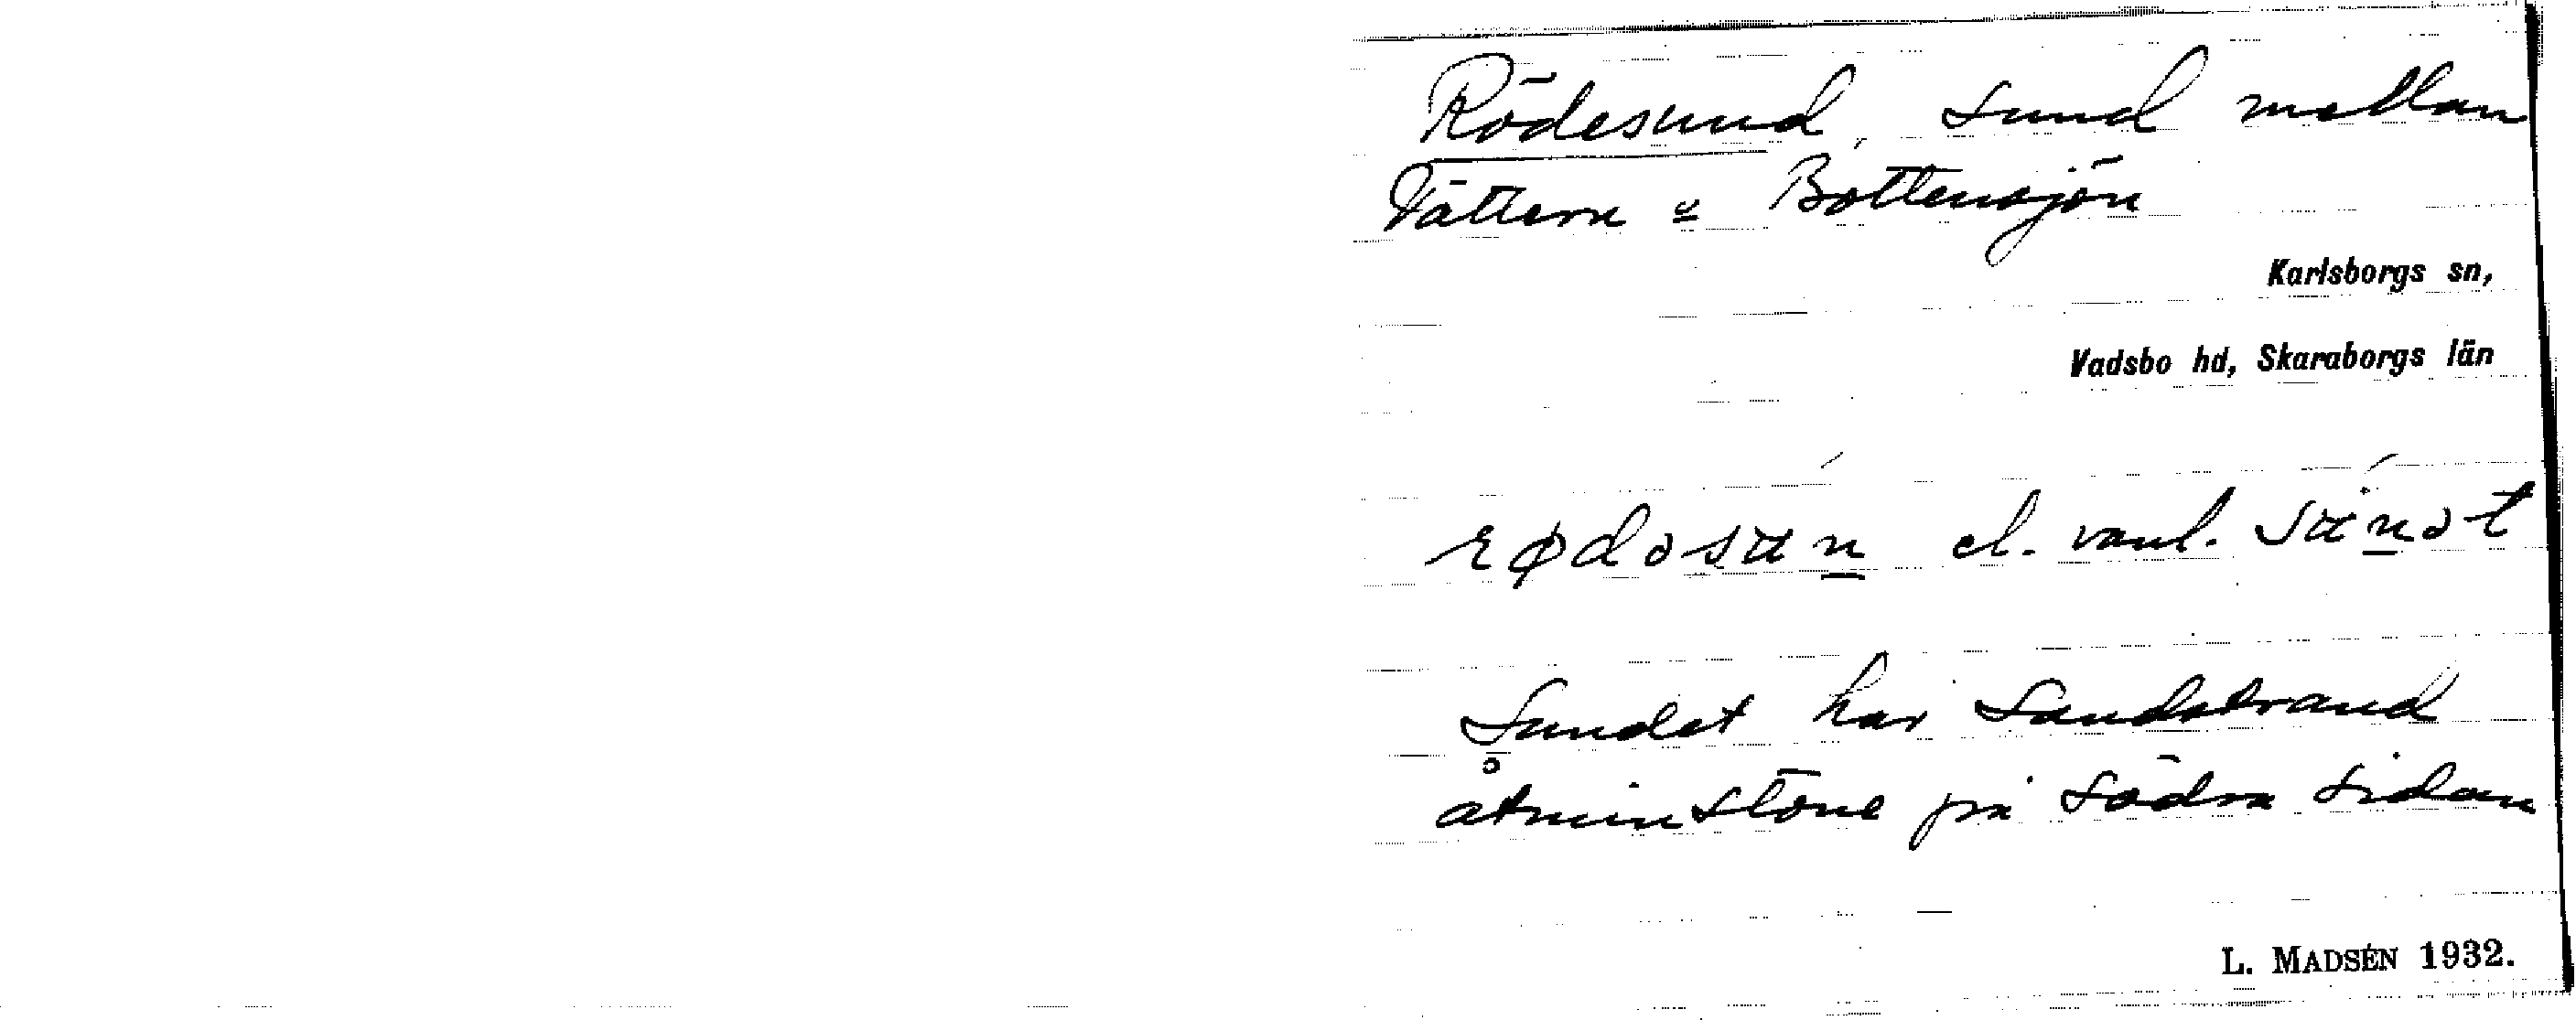 Rödesund, sund mellan
Vättern o Bottensjön
Karlsborgs sn,
Vadsbo hd, Skaraborgs län
el. vanl.
Sundet har sandstrand
åtminstone på södra sidan
L. MADSÉN 1932.